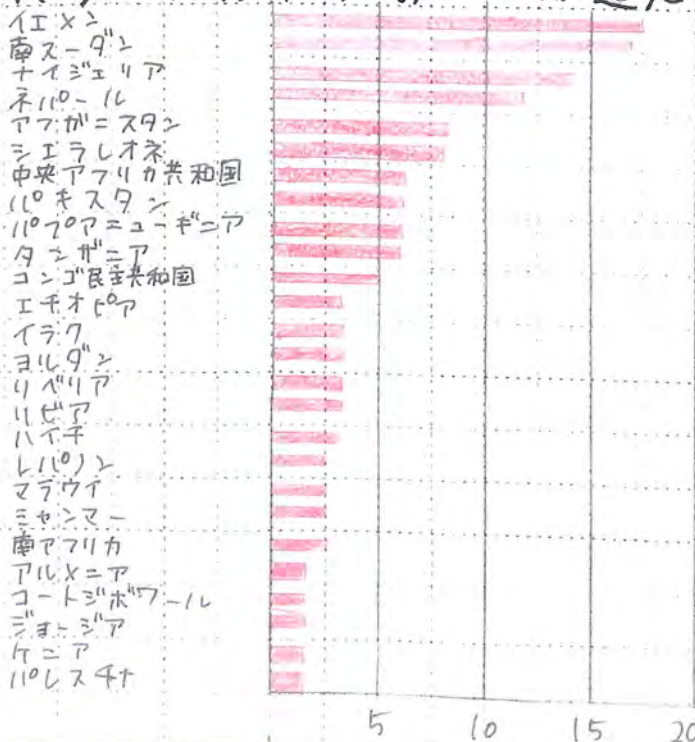 イエメン
南スーダン
ナイジェリア
ネパール
アフガニスタン
シエラレオネ
中央アフリカ共和国
パキスタン
パプアニューギニア
タンザニア
コンゴ民主共和国
エチオピア
イラク
ヨルダン
リベリア
リビア
ハイチ
レバノン
マラウイ
ミャンマー
南アフリカ
アルメニア
コートジボワール
ジョージア
ケニア
パレスチナ
5 10 15 20